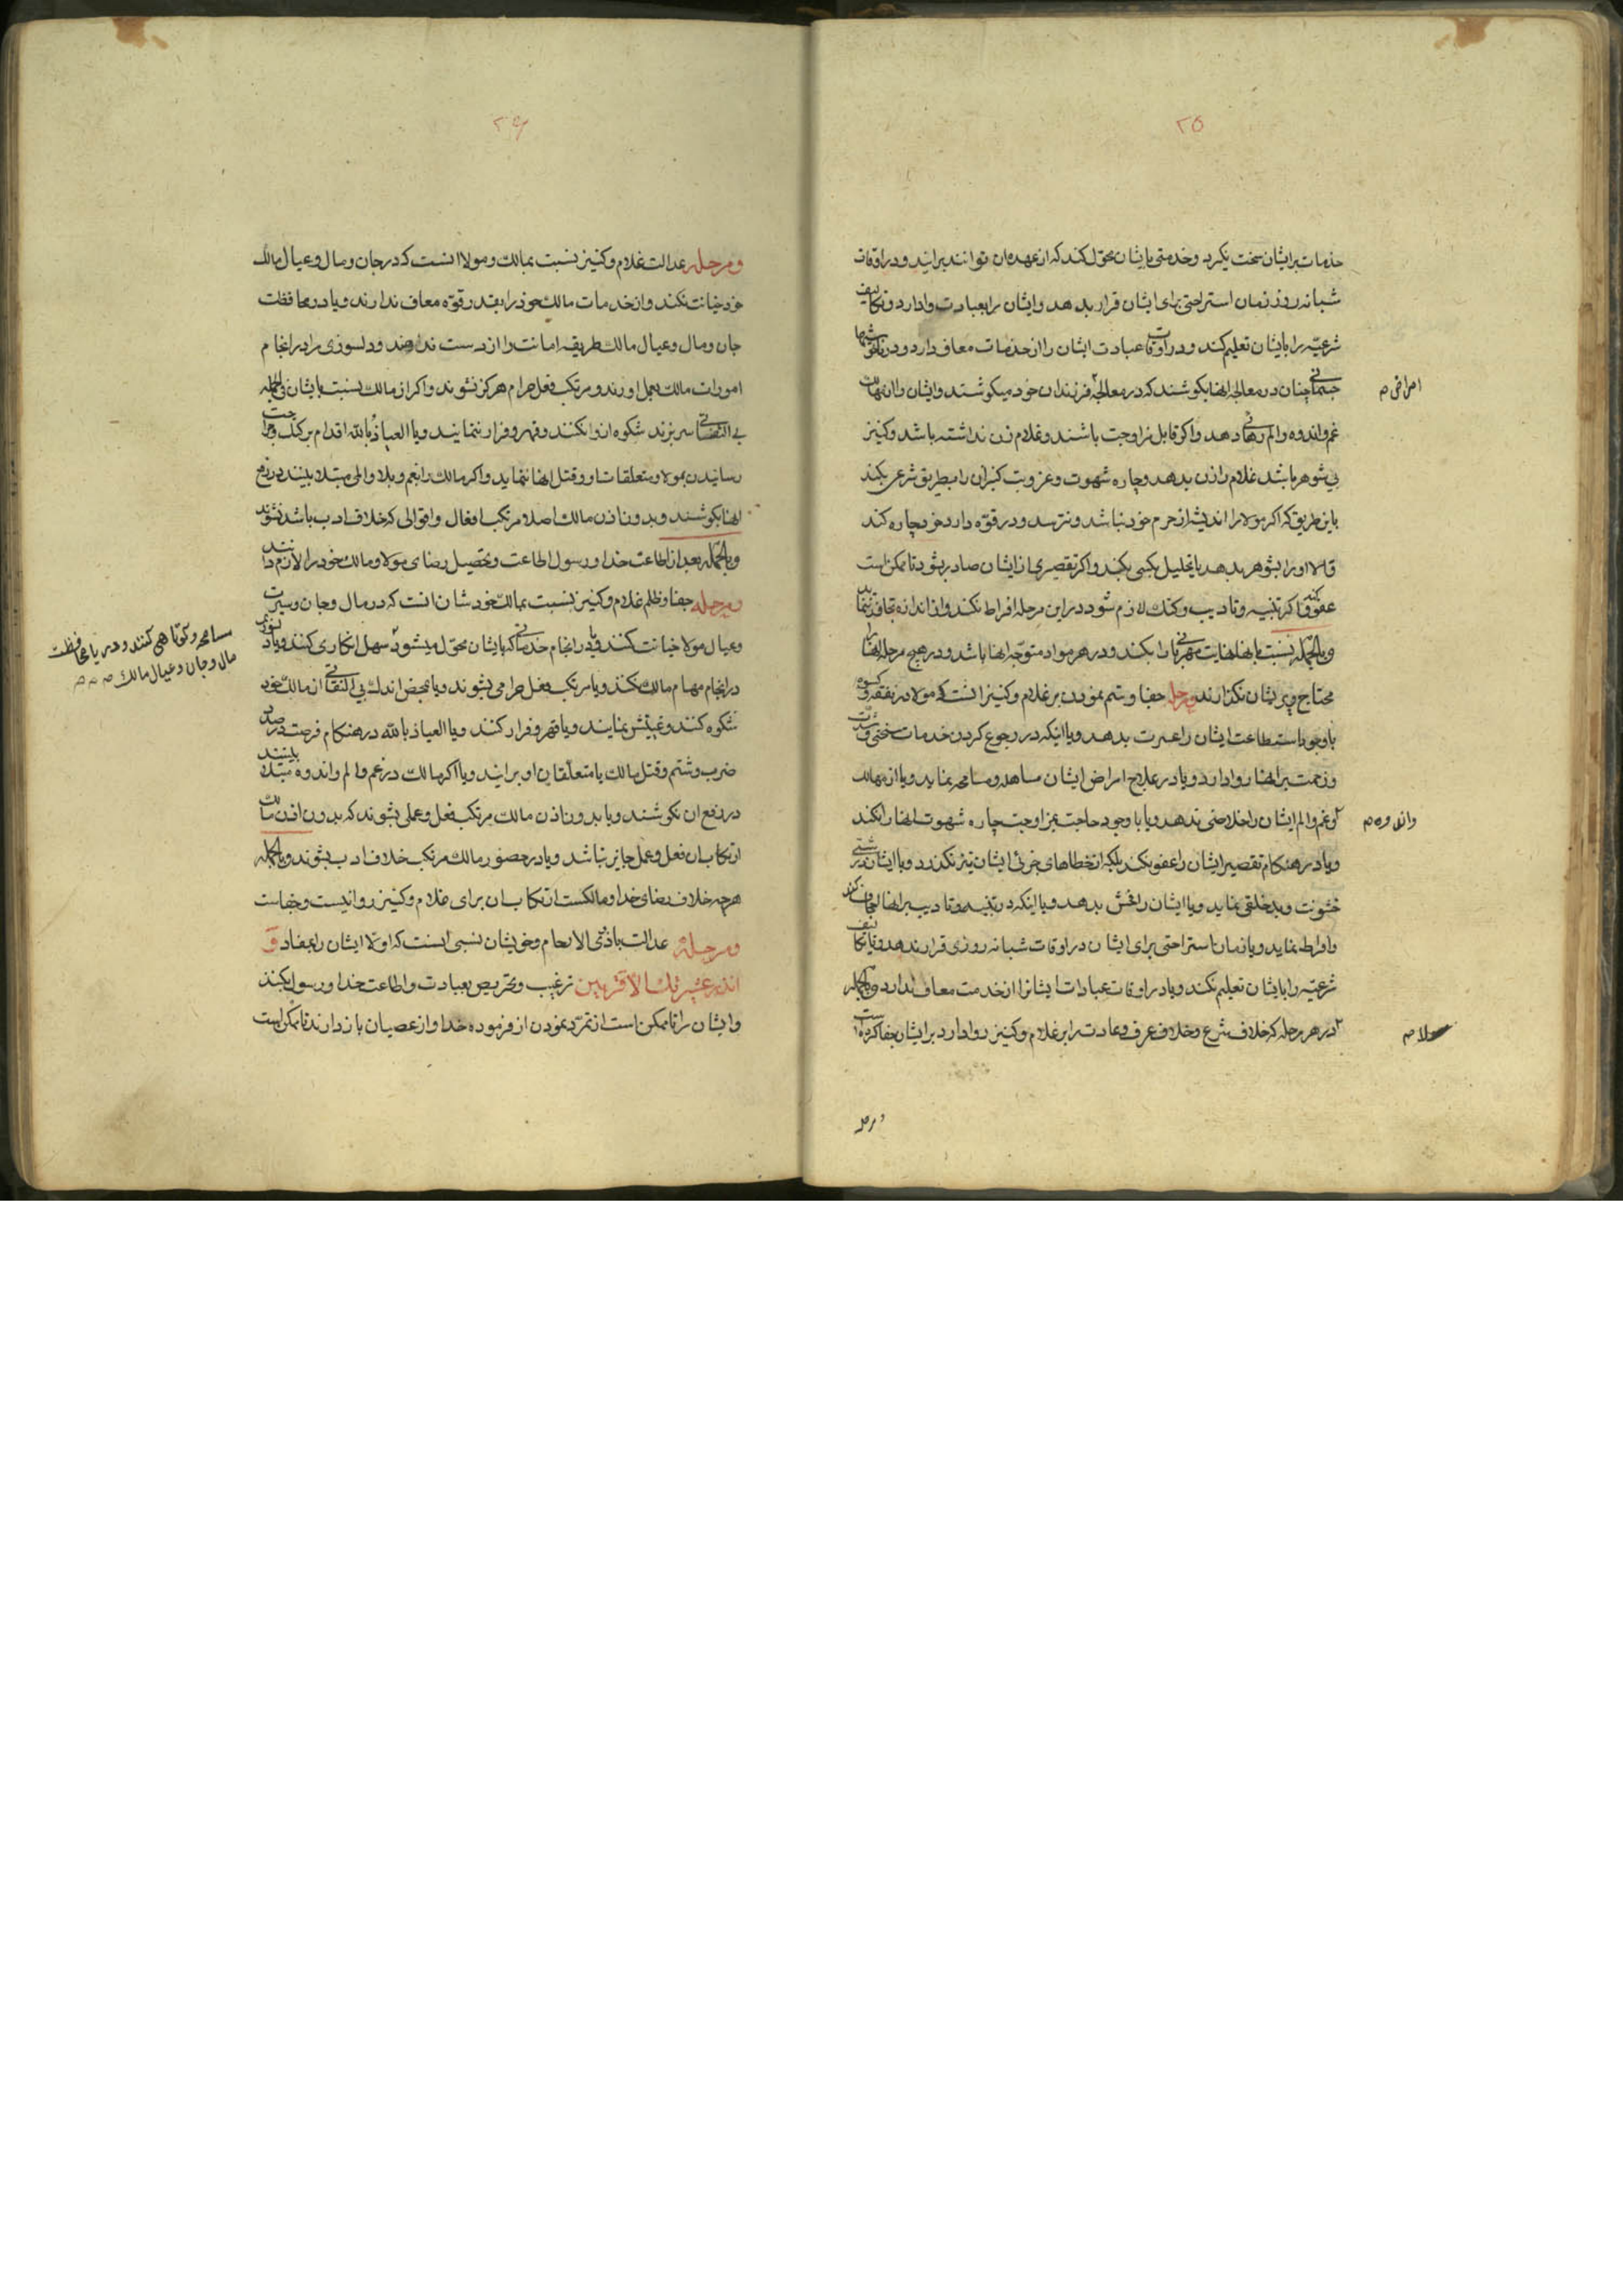 ۲۵
خدمات بر ایشان سخت نگیرد و خدمتی بایشان محوّل کند که از عهده ان توانند برایند و در اوقات
شبانه روز زمان استراحتی برای ایشان قرار بدهد و ایشان را بعبادت وادارد و تکالیف
شرعیّه را بایشان تعلیم کند و در اوقات عبادت ایشان را از خدمات معاف دارد و در ناخوشیها
جسمانی چنان در معالجه انها بکوشند که در معالجهٔ فرزندان خود میکوشند و ایشان را از مهالک
امراض م
غم و اندوه و الم رهائی دهد و اکر قابل مزاوجت باشند و غلام زن نداشته باشد و کنیز
بی شوهر باشد غلام را زن بدهد و چاره شهوت و عزوبت کنیزان را بطریق شرعی بکند
باین طریق که اکر مولا را اندیشه از حرم خود نباشد و نترسد و در قوّه دارد خود چاره کند
و الا او را بشوهر بدهد یا تحلیل بکسی بکند و اکر تقصیری از ایشان صادر بشود تا ممکن است
عفو کند و اکر تنبیه و تادیب و کتک لازم شود در این مرحله افراط نکند و از اندازه تجاوز ننماید
و بالجمله نسبت بانها نهایت مهربانی را بکند و در هر مواد متوجّه انها باشد و در هیچ مرحله انها را
محتاج و پریشان نکذارند و مرحله جفا و ستم نمودن بر غلام و کنیز انست که مولا در نفقه و کسوه
با وجود استطاعت ایشان را عسرت بدهد و یا اینکه در رجوع کردن خدمات سختی و شدّت
و زحمت بر انها روا دارد و یا در علاج امراض ایشان مساهله و مسامحه نماید و یا از مهالک
و غم و الم ایشان را خلاصی ندهد و یا با وجود حاجت بمزاوجت چاره شهوت انها را نکند
و اندوه م
و یا در هنکام تقصیر ایشان را عفو نکند بلکه از خطاهای جزئی ایشان نیز نکذرد و با ایشان درشتی
خشونت و بدخلقی نماید و یا ایشان را فحش بدهد و یا اینکه در تنبیه و تادیب بر انها اجحاف کند
و افراط نماید و یا زمان استراحتی برای ایشان در اوقات شبانه روزی قرار ندهد و یا تکالیف
شرعیّه را بایشان تعلیم نکند و یا در اوقات عبادات ایشانرا از خدمت معاف ندارد و بالجمله
در هر مرحله که خلاف شرع و خلاف عرف و عادت را بر غلام و کنیز روا دارد بر ایشان جفا کرده است
مولا م
و مرحله
۲۶
و مرحله عدالت غلام و کنیز نسبت بمالک و مولا انست که در جان و مال و عیال مالک
خود خیانت نکند و از خدمات مالک خود را بقدر قوّه معاف ندارند و یا در محافظت
جان و مال و عیال مالک طریقه امانت را از دست ندهند و دلسوزی را در انجام
امورات مالک بعمل اورند و مرتکب فعل حرام هرکز نشوند و اکر از مالک نسبت بایشان فی الجمله
بی التفاتی سر بزند شکوه او را نکنند و قهر و فرار ننمایند و یا العیاذ بالله اقدام بر کتک و جراحت
رسانیدن بمولا و متعلقات او و قتل انها ننماید و اکر مالک را بغم و بلا و المی مبتلا بینند در دفع
انها بکوشند و بدون اذن مالک اصلا مرتکب افعال و اقوالی که خلاف ادب باشد نشوند
و بالجمله بعد از اطاعت خدا و رسول اطاعت و تحصیل رضای مولا و مالک خود را لازم دانند
و مرحله جفا و ظلم غلام و کنیز نسبت بمالک خود شان انست که در مال و جان و سیرت
و عیال مولا خیانت کنند و یا در انجام خدماتی که بایشان محوّل میشود سهل انکاری کنند و یا دلسوزی
مسامحه و کوتاهی کنند و در یا محافظت
مال و جان و عیال مالک م م م
در انجام مهام مالک نکند و یا مرتکب فعل حرامی بشوند و یا بمحض اندک بی التفاتی از مالک خود
شکوه کنند و غیبتش نمایند و یا قهر و فرار کنند و یا العیاذ بالله در هنکام فرصت در صدد
ضرب و شتم و قتل مالک یا متعلّقان او برایند و یا اکر مالک در غم و الم و اندوه مبتلا بینند
در دفع ان نکوشند و یا بدون اذن مالک مرتکب فعل و عملی بشوند که بدون اذن مالک
ارتکاب ان فعل و عمل جایز نباشد و یا در حضور مالک مرتکب خلاف ادب بشوند و بالجمله
هر چه خلاف رضای خدا و مالکست ارتکاب ان برای غلام و کنیز روا نیست و جفاست
و مرحلهٔ عدالت با ذوی الارحام و خویشان نسبی انست که اوّلا ایشان را بمفاد وَ
انذر عشیرتک الاقربین ترغیب و تحریص بعبادت و اطاعت خدا و رسول بکند
و ایشان را تا ممکن است از تمرّد نمودن از فرموده خدا و از عصیان باز دارند تا ممکن است